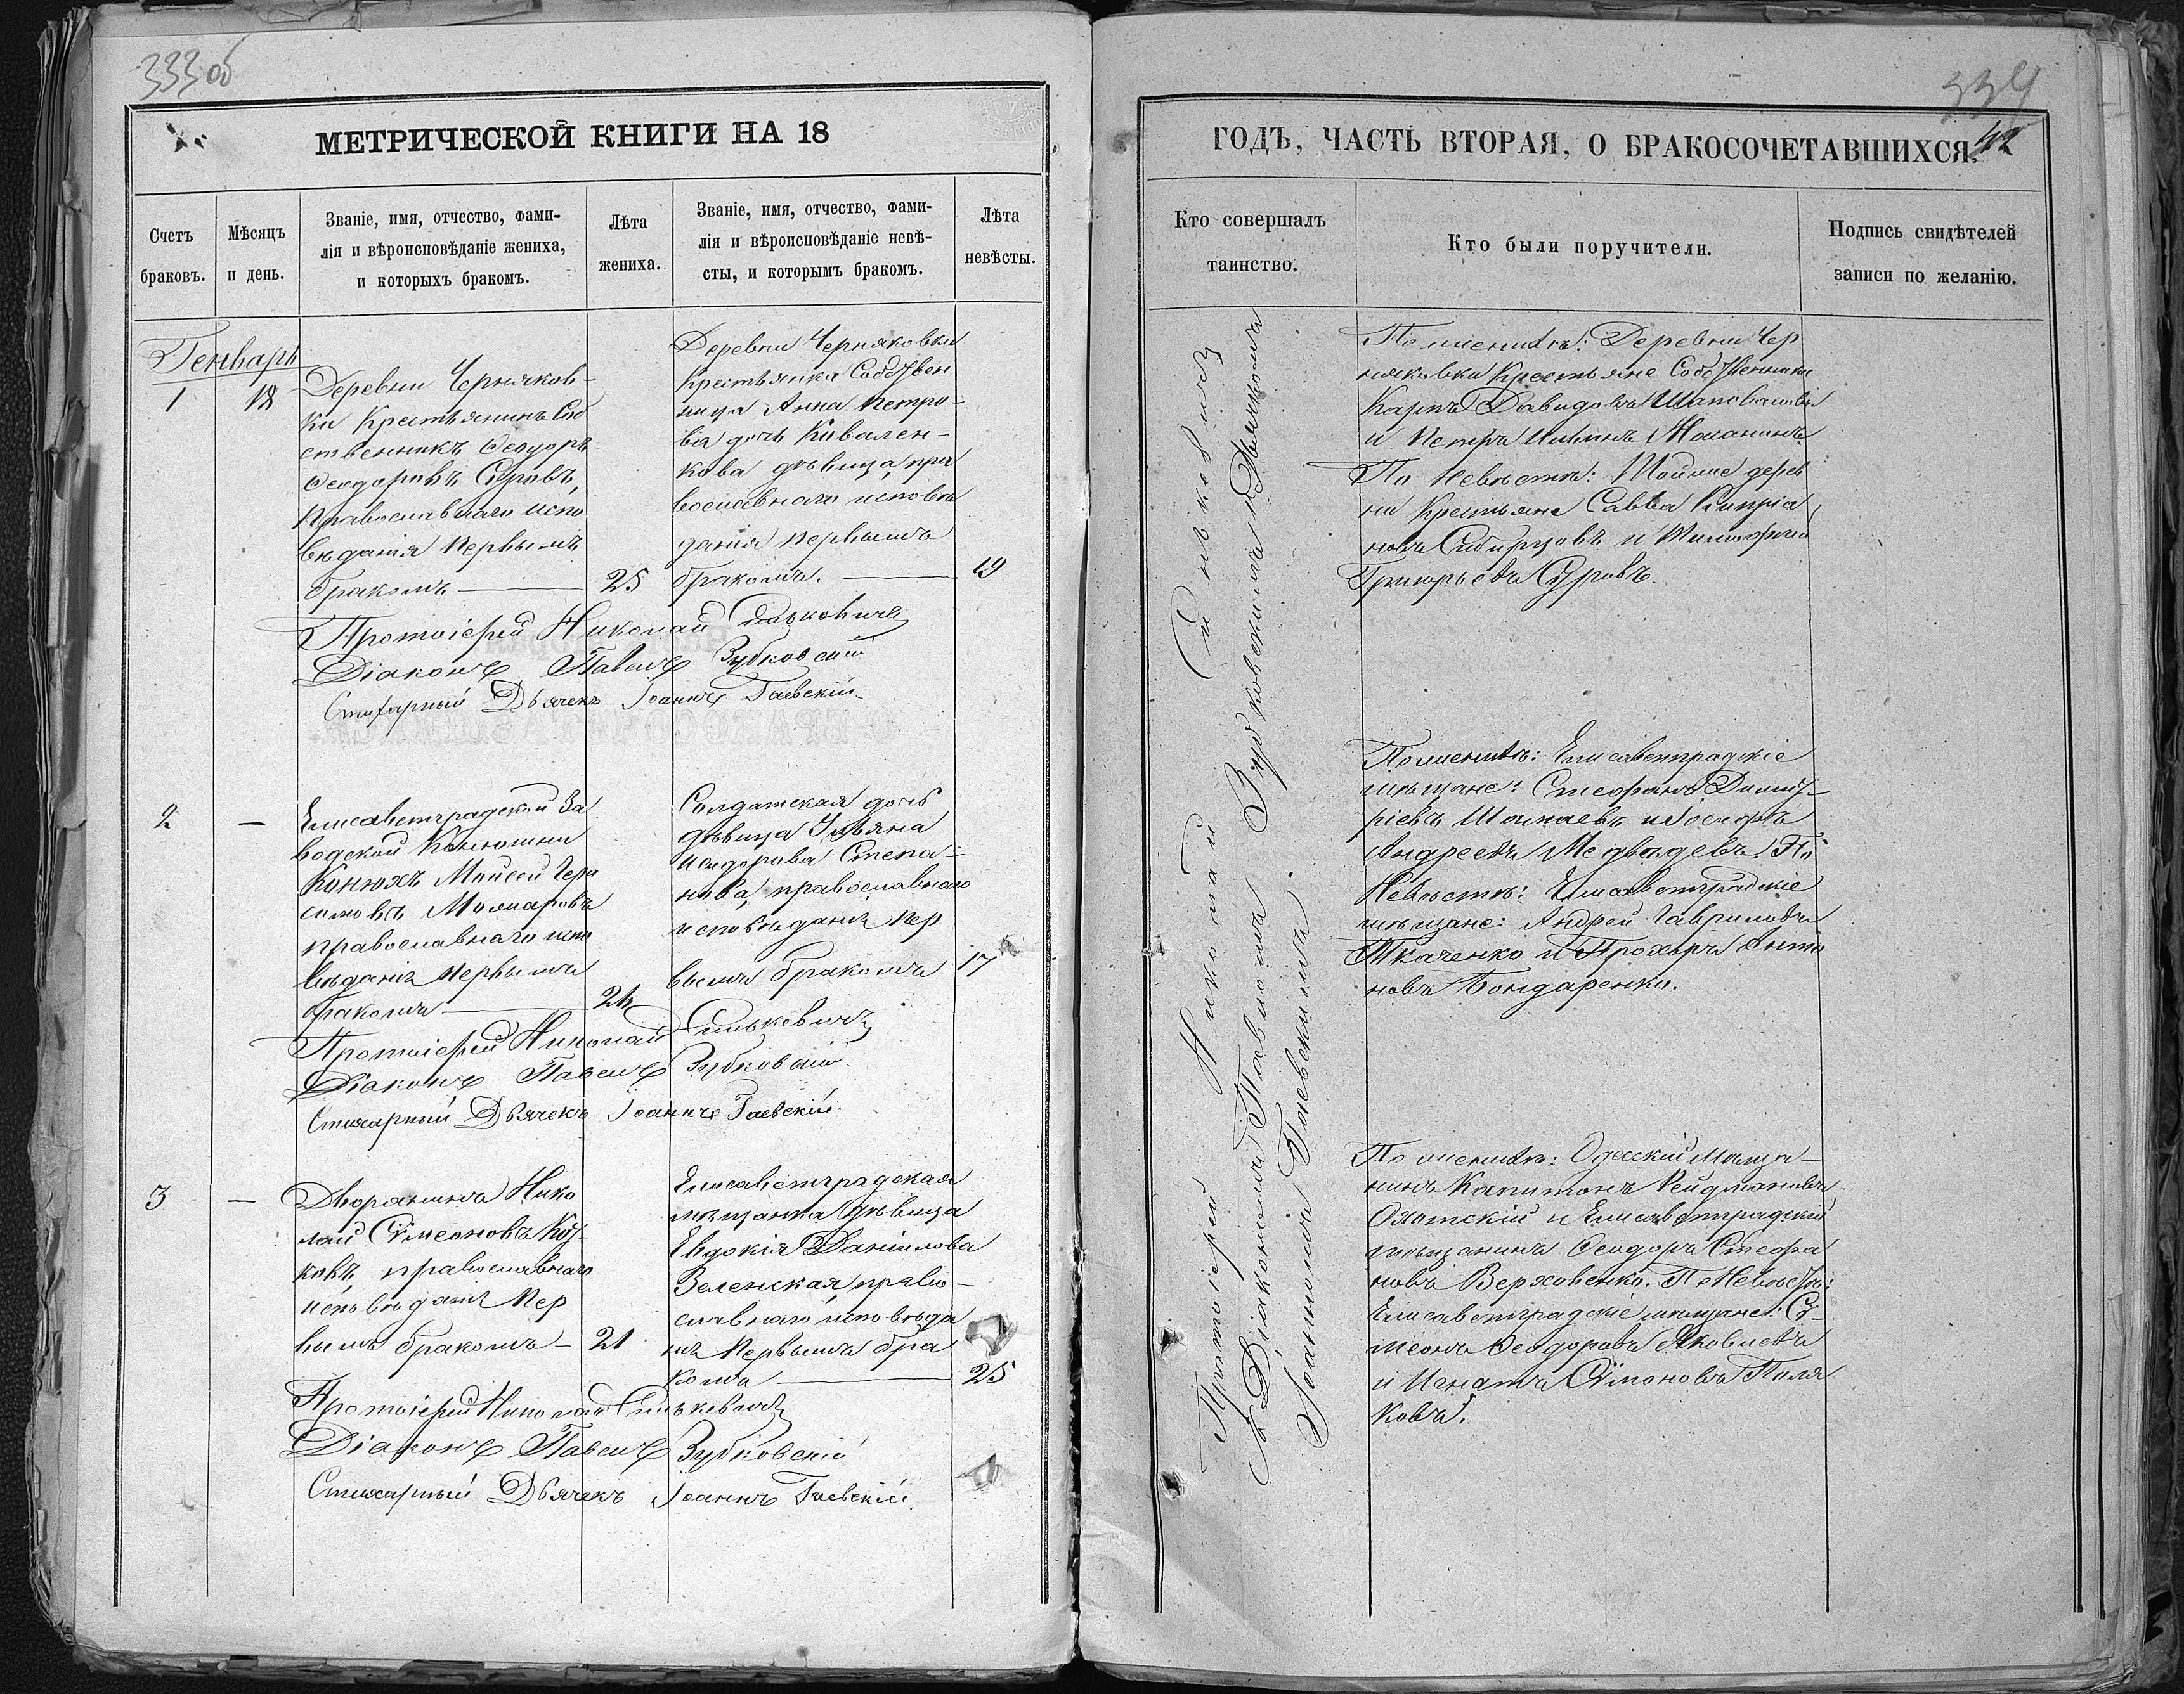 333 об
МЕТРИЧЕСКОЙ КНИГИ НА 18
Счетъ
браковъ.
Мѣсяцъ
и день.
Званіе, имя, отчество, фами-
лія и вѣроисповѣданіе жениха,
и которыхъ бракомъ.
Лѣта
жениха.
Званіе, имя, отчество, фами-
лія и вѣроисповѣданіе невѣ-
сты, и которымъ бракомъ.
Лѣта
невѣсты.
Генварь
1
18
Деревни Черняков-
ки Крестьянинъ Соб
ственникъ Ѳеодоръ
Ѳеодоровъ Суровъ,
Православнаго испо
вѣданія первымъ
бракомъ
25
Деревни Черняковки
Крестьянка Собствен
ница Анна Петро-
ва дочь Ковален-
кова дѣвица, пра
вославнаго исповѣ
данія первымъ
бракомъ.
19
Протоіерей Николай Синькевичъ
Діаконъ Павелъ Зубковскій
Стихарный Дьячекъ Іоаннъ Гаевскій
2
—
Елисаветградской За
водской Конюшни
Конюхъ Моисей Гера
симовъ Моляровъ
православнаго испо
вѣданія первымъ
бракомъ
24
Солдатская дочь
дѣвица Ульяна
Исидорова Степа-
нова, православнаго
исповѣданія пер
вымъ бракомъ
17
Протоіерей Николай Синькевичъ
Діаконъ Павелъ Зубковскій
Стихарный Дьячекъ Іоаннъ Гаевскій.
3
—
Дворянинъ Нико
лай Сѵмеоновъ
православнаго
исповѣданія пер
вымъ бракомъ
21
Елисаветградская
мѣщанка дѣвица
Евдокія Даніилова
Зеленская, право-
славнаго исповѣда
нія первымъ бра
комъ
25
Протоіерей Николай Синькевичъ
Діаконъ Павелъ Зубковскій
Стихарный Дьячекъ Іоаннъ Гаевскій.
334
42
ГОДЪ, ЧАСТЬ ВТОРАЯ, О БРАКОСОЧЕТАВШИХСЯ.
Кто совершалъ
таинство.
Кто были поручители.
Подпись свидѣтелей
записи по желанію.
Протоіерей Николай Синькевичъ
съ Діакономъ Павломъ Зубковскимъ и Дьячкомъ
Іоанномъ Гаевскимъ.
По женихѣ: Деревни Чер
няковки Крестьяне Собственники
Карпъ Давидовъ Шаповаловъ
и Петръ Ильинъ
По невѣстѣ: Тойже дерев
ни Крестьяне Савва Кипріа
новъ Сибирцовъ и Тимофей
Григорьевъ Суровъ.
По женихѣ: Елисаветградскіе
мѣщане: Стефанъ Димит-
ріевъ и Іосифъ
Андреевъ Медвѣдевъ. По
Невѣстѣ: Елисаветградскіе
мѣщане: Андрей Гавриловъ
Ткаченко и Прохоръ Анто
новъ Бондаренко.
По женихѣ: Одесскій Мѣща-
нинъ Капитонъ
Охотскій и Елисаветградскій
мѣщанинъ Ѳеодоръ Стефа
новъ Верховенко. По Невѣстѣ:
Елисаветградскіе мѣщане: Сѵ-
меонъ Ѳеодоровъ Яковлевъ
и Игнатъ Сѵмоновъ Поля
ковъ.